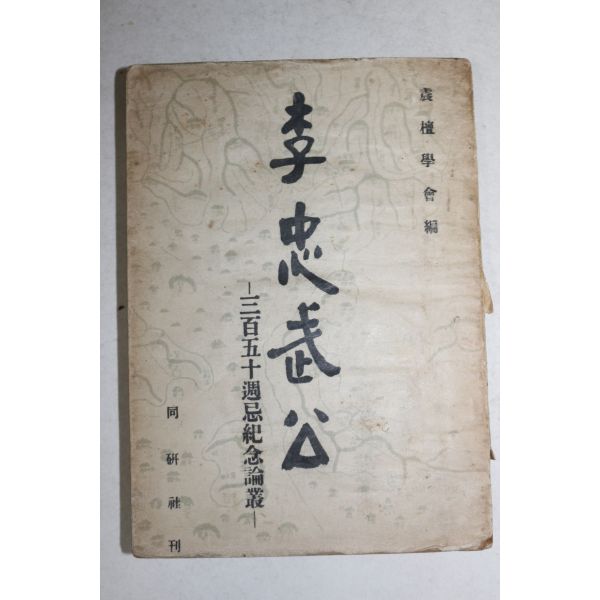 震檀學會編
李忠武公
―三百五十週忌紀念論叢―
同硏社刊